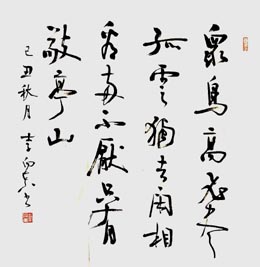 眾鳥高飛盡
孤云獨去閑相
看兩不厭只有
敬亭山
己丑秋月